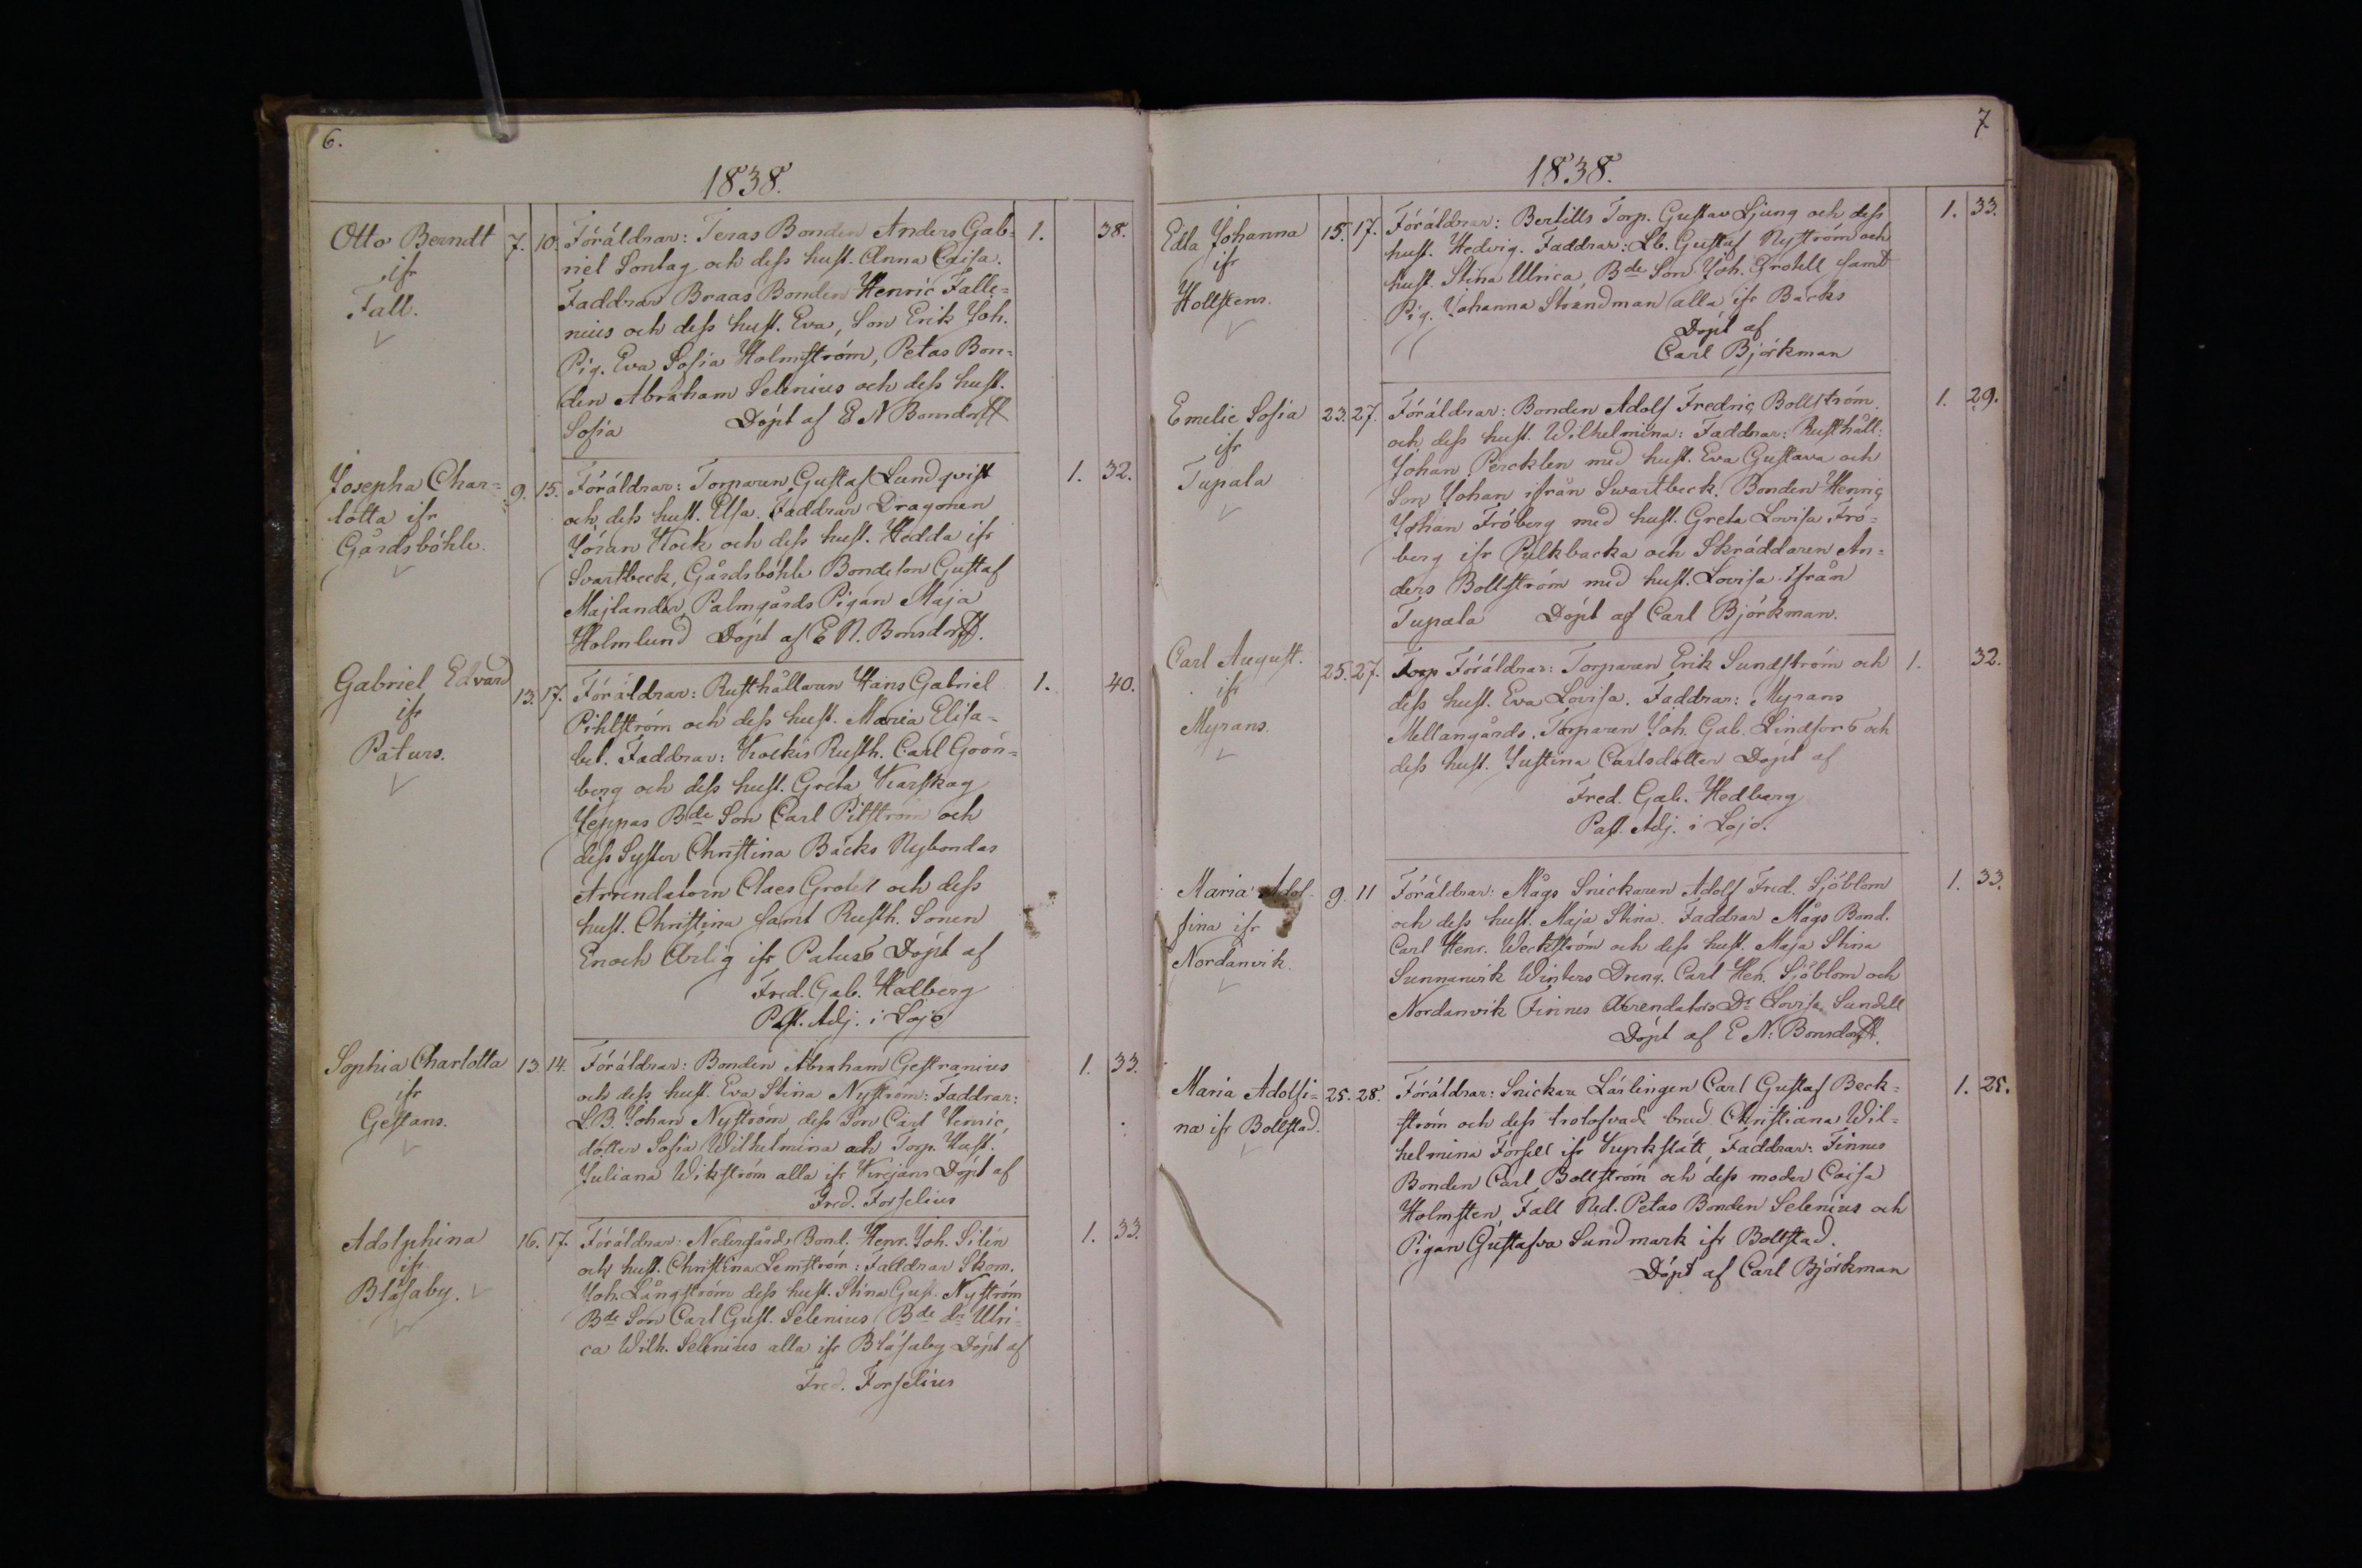 6.
1838.
Otto Berndt
ifr
Fall.
7. 10.
Föräldrar: Teras Bonden Anders Gab-
riel Sontag och dess hust. Anna Caisa.
Faddrar Braas Bonden Henric Falle-
nius och dess hust. Eva, Son Erik Joh.
Pig. Eva Sofia Holmström, Petas Bon-
den Abraham Selenius och dess hust.
Sofia Döpt af E N Bonsdorff
1. 38.
Josepha Char-
lotta ifr
Gårdsböhle.
9. 15.
Föräldrar: Torparen Gustaf Lundqvist
och dess hust. Elsa. Faddrar Dragonen
Jöran Kock och dess hust. Hedda ifr
Svartbeck, Gårdsböhle Bondeson Gustaf
Majlander, Palmgårds Pigan Maja
Holmlund Döpt af E N. Bonsdorff.
1. 32.
Gabriel Edvard
ifr
Paturs.
13. 17.
Föräldrar: Rusthållaren Hans Gabriel
Pihlström och dess hust. Maria Elisa-
bet. Faddrar: Kockis Rusth. Carl Grön-
berg och dess hust. Greta Karskog
Jeppas Bde Son Carl Pilström och
dess Syster Christina Bäcks Nybondas
Arrendatorn Claes Grotell och dess
hust. Christina samt Rusth. Sonen
Enoch Ärlig ifr Paturs Döpt af
Fred. Gab. Hedberg
Past. Adj. i Lojo
1. 40.
Sophia Charlotta
ifr
Gestans.
13. 14.
Föräldrar: Bonden Abraham Gestranius
och dess hust. Eva Stina Nyström: Faddrar:
L.B. Johan Nyström, dess Son Carl Henric,
dotter Sofia Wilhelmina och Torp. Hust.
Juliana Wikström alla ifr Kirjans Döpt af
Fred. Forselius
1. 33.
Adolphina
ifr
Blåsaby.
16. 17.
Föräldrar: Nedergårds Bond. Henr. Joh. Silén
och hust. Christina Lemström: Faddrar Skom.
Joh. Långström dess hust. Stina Gust. Nyström
Bde Son Carl Gust. Selenius, Bde dr Ulri-
ca Wilh. Selenius alla ifr Blåsaby Döpt af
Fred. Forselius
1. 33.
7
1838.
Edla Johanna
ifr
Hollstens.
15. 17.
Föräldrar: Bertills Torp. Gustav Ljung och dess
hust. Hedvig. Faddrar: Lb. Gustaf Nyström och
hust. Stina Ulrica, Bde Son Joh. Grotell samt
Pig. Johanna Strandman alla ifr Bäcks
Döpt af
Carl Björkman
1. 33.
Emelie Sofia
ifr
Tupala
23. 27.
Föräldrar: Bonden Adolf Fredric Bollström
och dess hust. Wilhelmina: Faddrar: Rusthåll:
Johan Percklen med hust. Eva Gustava och
Son Johan ifrån Swartbeck. Bonden Henric
Johan Fröberg med hust. Greta Lovisa Frö-
berg ifr Pulkbacka och Skräddaren An-
ders Bollström med hust. Lovisa ifrån
Tupala Döpt af Carl Björkman.
1. 29.
Carl August.
ifr
Myrans.
25. 27.
Torp Föräldrar: Torparen Erik Sundström och
dess hust. Eva Lovisa. Faddrar: Myrans
Mellangårds Torparen Joh. Gab. Lindfors och
dess hust. Justina Carlsdotter Döpt af
Fred. Gab. Hedberg
Past. Adj. i Lojo.
1. 32.
Maria Adol-
fina ifr
Nordanvik.
9. 11
Föräldrar: Mågs Snickaren Adolf Fred. Sjöblom
och dess hust. Maja Stina. Faddrar Mågs Bond.
Carl Henr. Weckström och dess hust. Maja Stina
Sunnanvik Winters Dreng. Carl Hen. Sjöblom och
Nordanvik Finnes Arrendators Dr Lovisa Sundell
Döpt af E N: Bonsdorff.
1. 33.
Maria Adolfi-
na ifr Bollstad.
25. 28.
Föräldrar: Snickare Lärlingen Carl Gustaf Beck-
ström och dess trolofvade brud Christiana Wil-
helmina Forsell ifr Kyrkslätt, Faddrar: Finnes
Bonden Carl Bollström och dess moder Caisa
Holmsten, Fall Ned. Petas Bonden Selenius och
Pigan Gustafva Sundmark ifr Bollstad.
Döpt af Carl Björkman
1. 25.